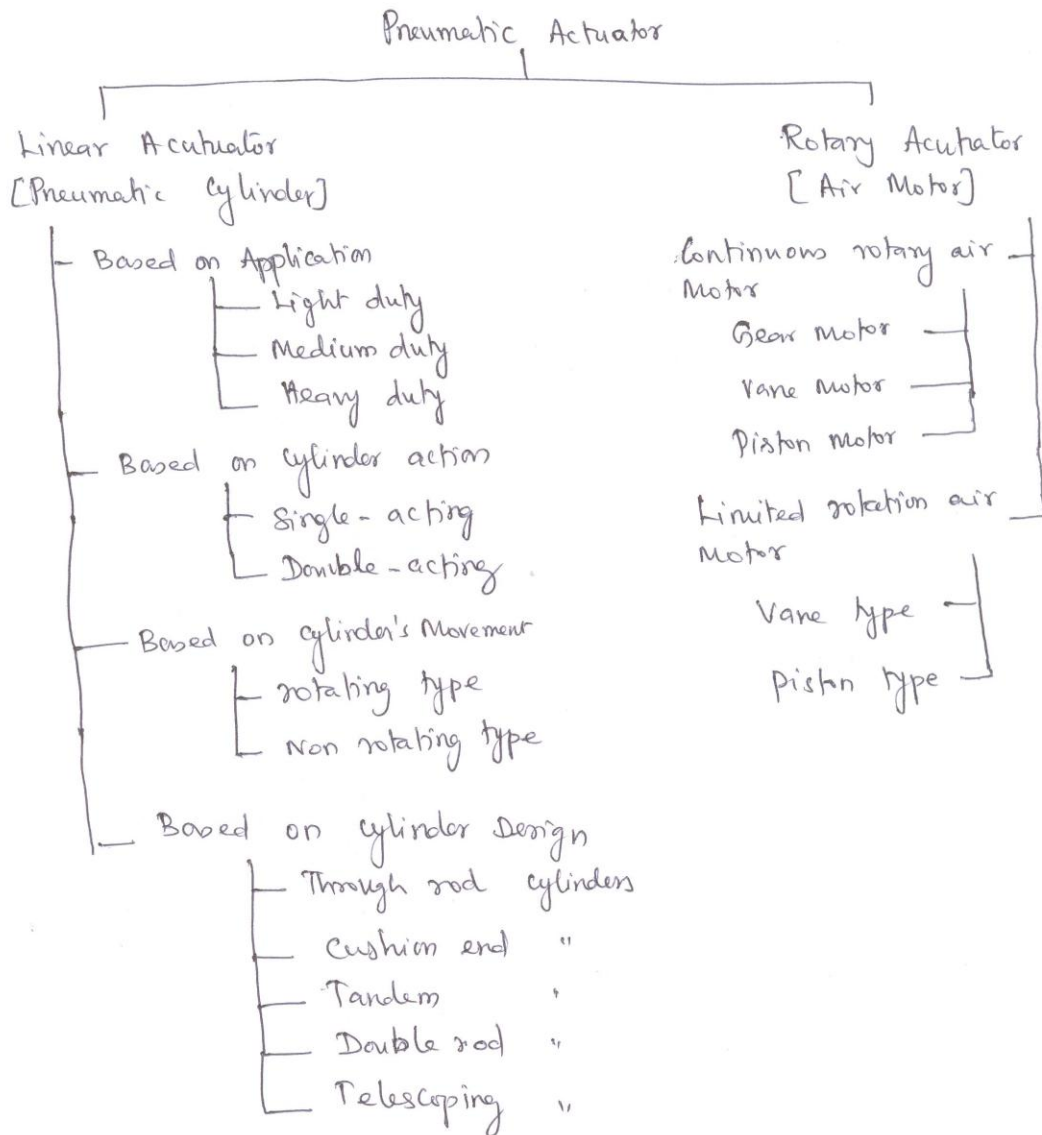 Pneumatic Actuator
Linear Acutuator
[Pneumatic Cylinder]
Based on Application
Light duty
Medium duty
Heavy duty
Based on cylinder action
Single-acting
Double-acting
Based on cylinder's Movement
rotating type
Non rotating type
Based on cylinder Design
Through rod cylinders
Cushion end "
Tandem "
Double rod "
Telescoping "
Rotary Acutator
[Air Motor]
Continuous rotary air
Motor
Gear motor
Vane motor
Piston motor
Limited rotation air
Motor
Vane type
Piston type